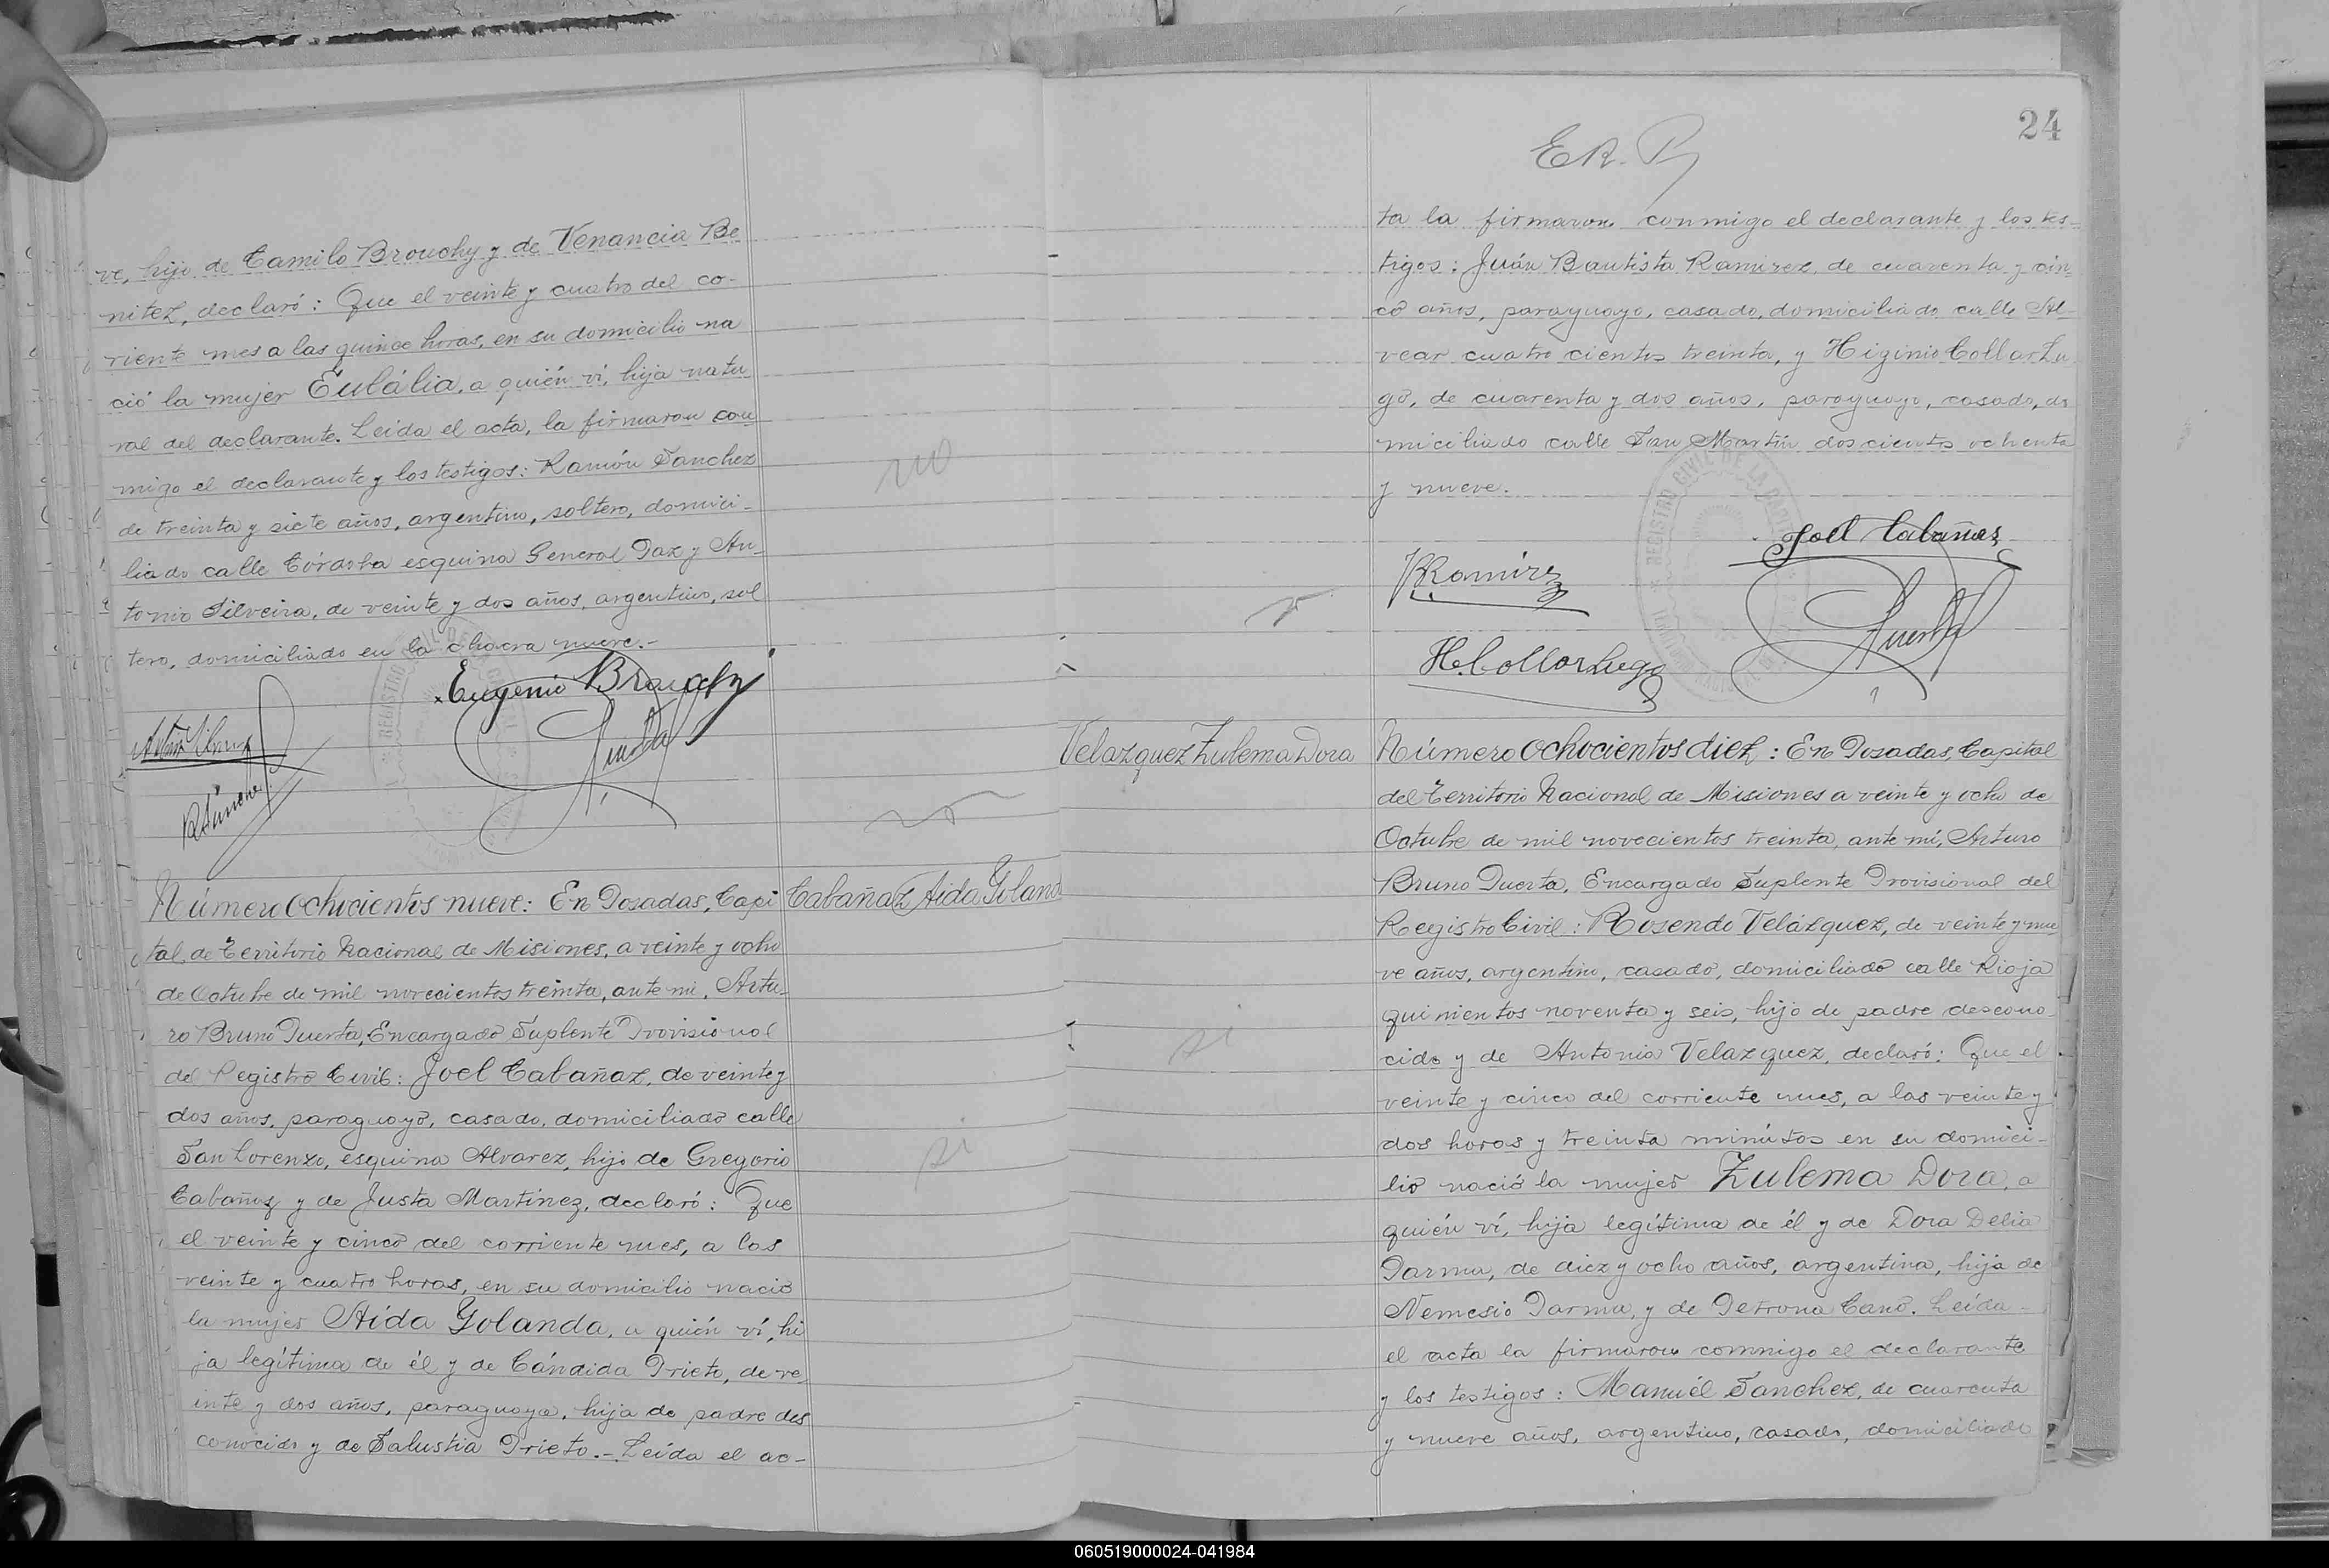 ve, hijo de Camilo Brouchy y de Venancia Be
nitez, declaró: Que el veinte y cuatro del co-
rriente mes a las quince horas, en su domicilio na
ció la mujer Eulália, a quién ví, hija natu
ral del declarante. Leida el acta, la firmaron con
migo el declarante y los testigos: Ramón Sanchez
de treinta y siete años, argentino, soltero, domici-
liado calle Córdoba esquina General Paz y An-
tonio Silveira, de veinte y dos años, argentino, sol
tero, domiciliado en la chacra nueve.-
no
Eugenio Brouchy
Puerta
R Sánchez
Número ochocientos nueve: En Posadas, Capi
Cabañaz Aida Yoland
tal de Territorio Nacional de Misiones, a veinte y ocho
de Octubre de mil novecientos treinta, ante mí, Artu-
ro Bruno Puerta, Encargado Suplente Provisional
del Registro Civil: Joel Cabañaz, de veinte y
dos años, paraguayo, casado, domiciliado calle
San Lorenzo, esquina Alvarez, hijo de Gregorio
Cabañaz y de Justa Martínez, declaró: Que
el veinte y cinco del corriente mes, a las
veinte y cuatro horas, en su domicilio nació
la mujer Aída Yolanda, a quién ví, hi
ja legítima de él y de Cándida Prieto, de ve
inte y dos años, paraguaya, hija de padre des
conocido y de Salustia Prieto.- Leída el ac-
si
24
E.R.
ta la firmaron conmigo el declarante y los tes-
tigos: Juán Bautista Ramirez, de cuarenta y cin
co años, paraguayo, casado, domiciliado calle Al-
vear cuatro cientos treinta, y Higinio Collar Lu
go, de cuarenta y dos años, paraguayo, casado, do
miciliado calle San Martín doscientos ochenta
y nueve.
REGISTRO CIVIL DE LA CAPITAL
Joel Cabañas
Ramirez
Puerta
H. Collar Lugo
Velazquez Zulema Dora
Número ochocientos diez: En Posadas, Capital
del Territorio Nacional de Misiones a veinte y ocho de
Octubre de mil novecientos treinta, ante mí, Arturo
Bruno Puerta, Encargado Suplente Provisional del
Registro Civil: Rosendo Velázquez, de veinte y nue
ve años, argentino, casado, domiciliado calle Rioja
quinientos noventa y seis, hijo de padre descono-
cido y de Antonia Velazquez, declaró: Que el
veinte y cinco del corriente mes, a las veinte y
dos horas y treinta minutos en su domici-
lio nació la mujer Zulema Dora, a
quién ví, hija legítima de él y de Dora Delia
Parma, de diez y ocho años, argentina, hija de
Nemesio Parma, y de Petrona Cano. Leída
el acta la firmaron conmigo el declarante
y los testigos: Manuél Sanchez, de cuarenta
y nueve años, argentino, casado, domiciliado
si
060519000024-041984